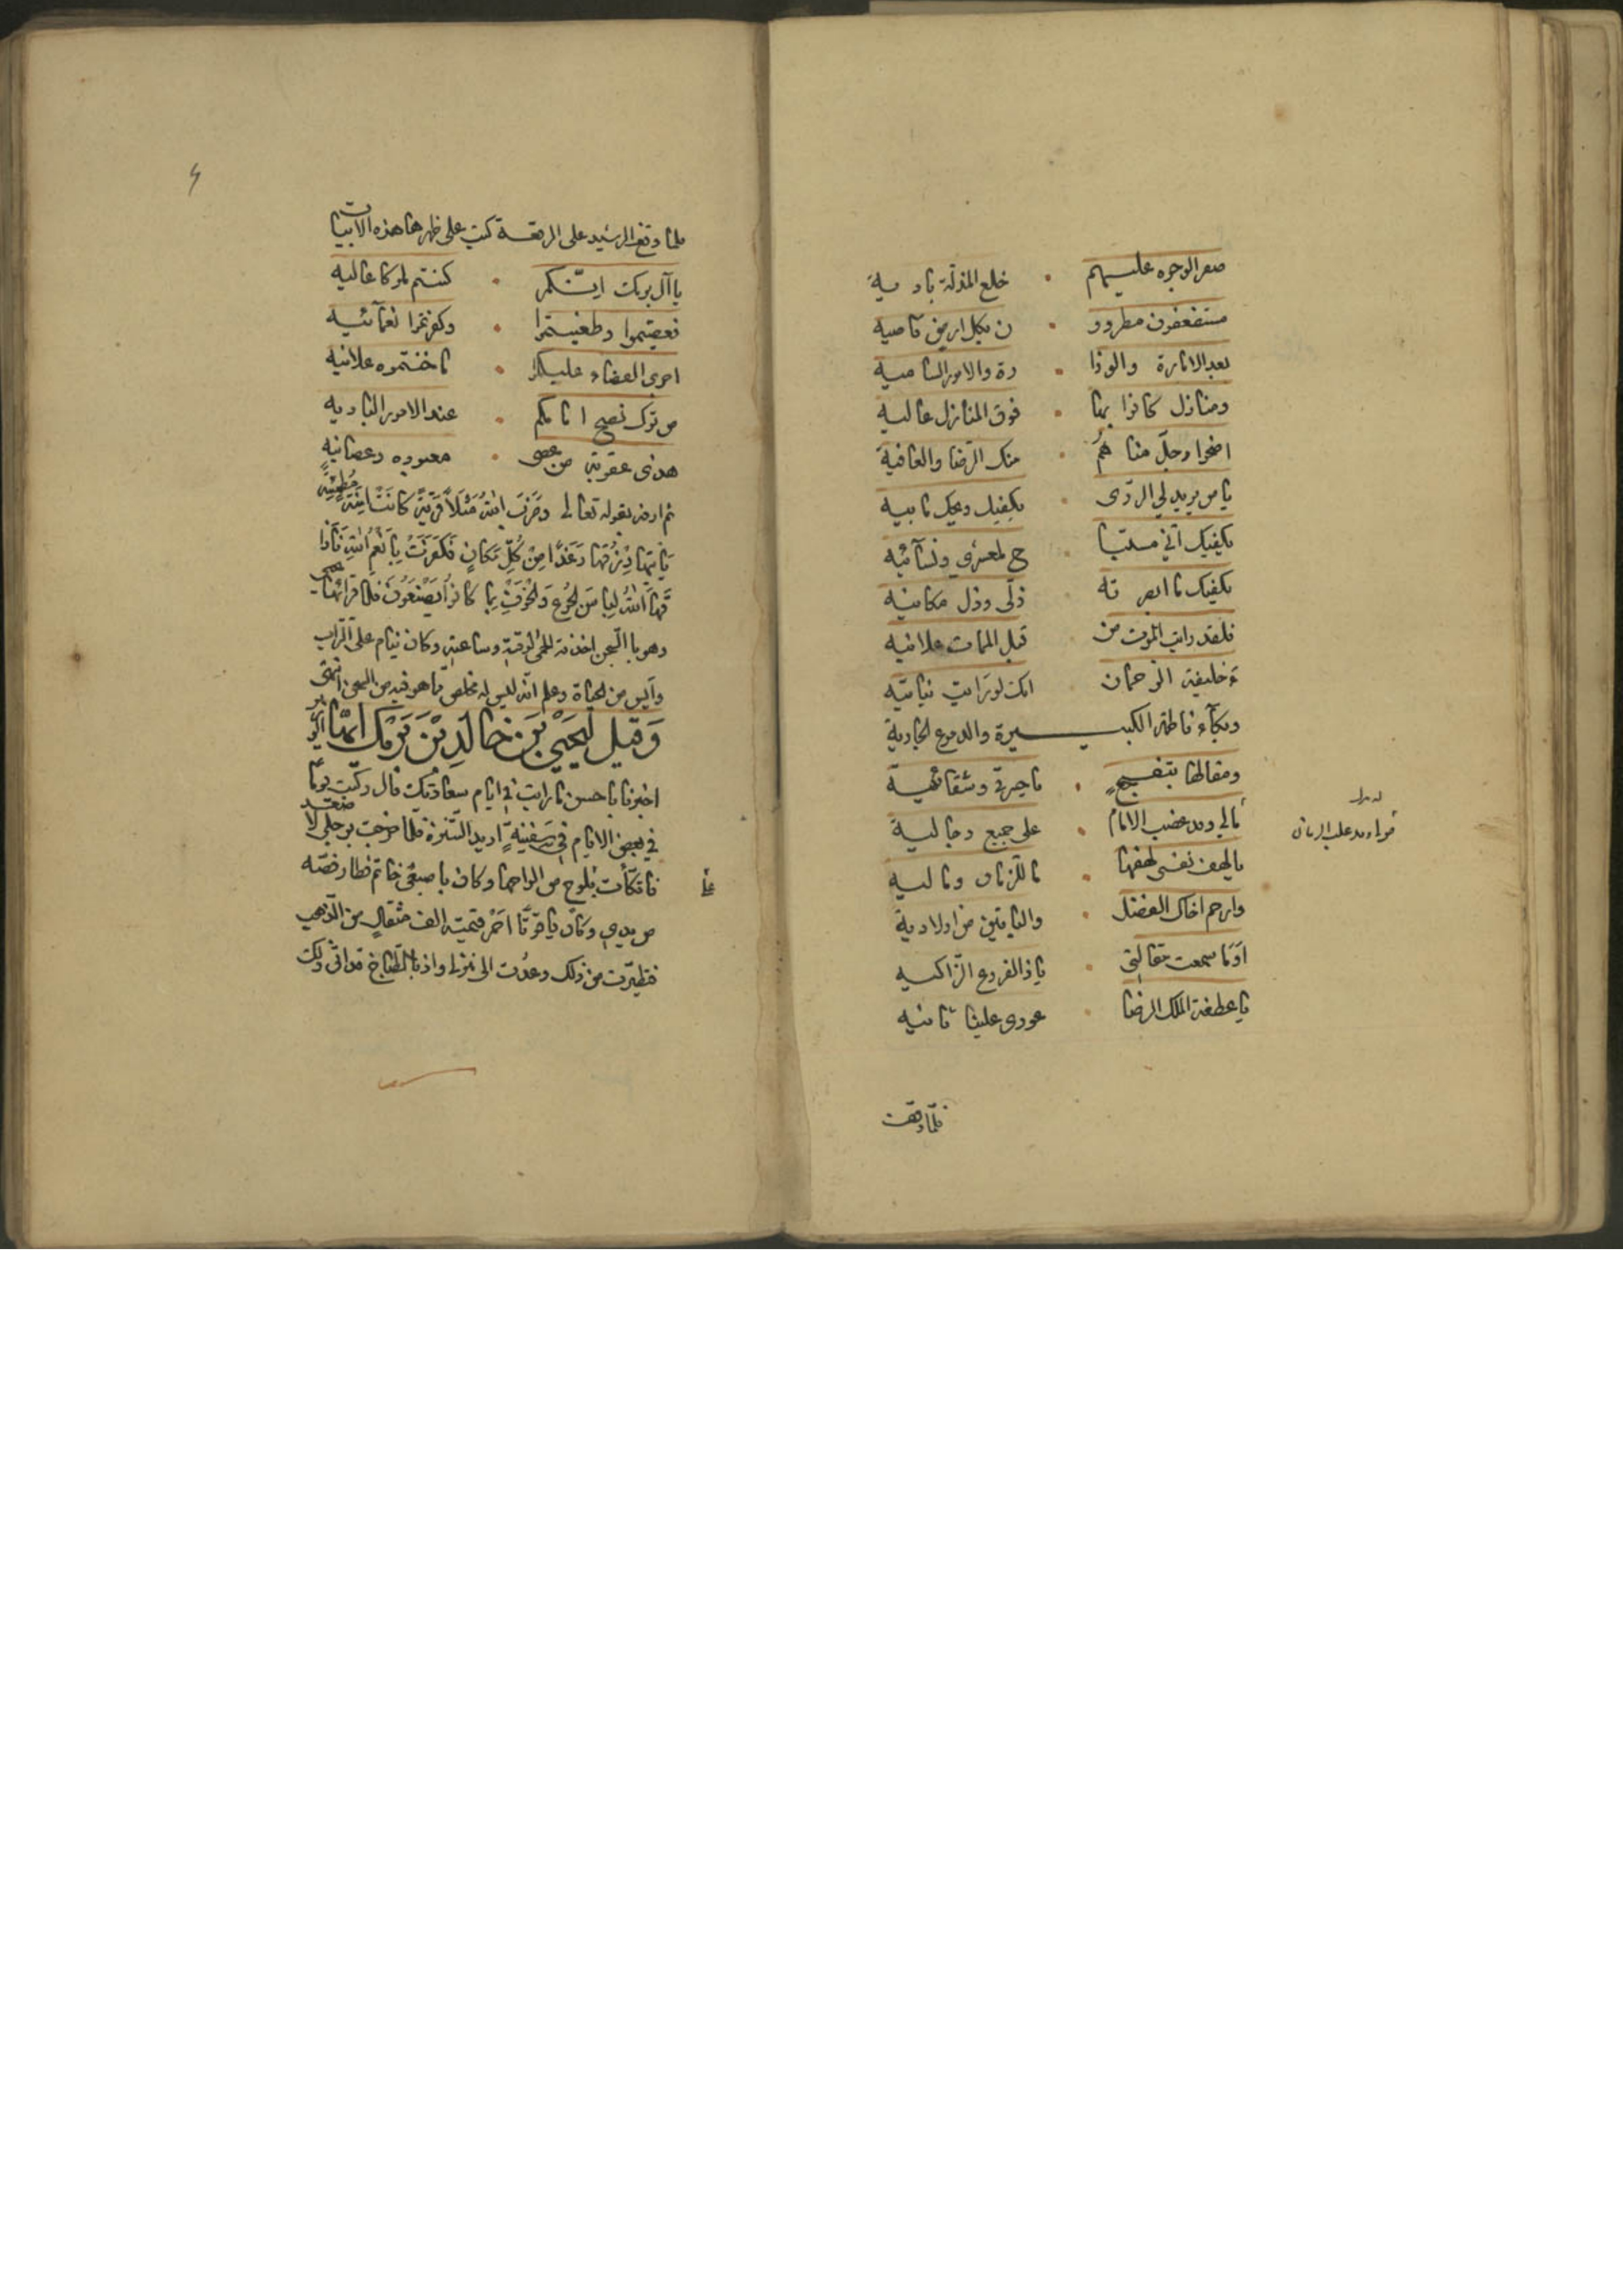 صفر الوجوه عليهم خلع المذلة بادية
مستضعفون مطردو ن بكل ارض قاصيه
بعد الامارة والوزا رة والامور السامية
ومنازل كانوا بها فوق المنازل عاليه
اضحوا وجل مناهم منك الرضا والعافية
يا من يريد لي الردى يكفيك ويحك مابيه
يكفيك اني مستبا ح معشري ونسآئيه
يكفيك ما ابصرته ذلى وذل مكانيه
فلقد رايت الموت من قبل الممات علانيه
خليفة الرحمان انك لو رايت بناتيه
وبكآء فاطمة الكبيـــــيرة والدموع الجارية
ومقالها بتفجع ياحيرتي وشقائيه
مالي وقد غضب الامام على جميع رجاليه
يالهف نفسى لهفها ما للزمان وماليه
وارحم اخاك الفضل والباقين من اولاديه
اوما سمعت مقالتى ياذا الفروع الزاكيه
يا عطفة الملك الرضا عودى علينا ثانيه
فلما وقف
فلما وقف الرشيد على الرقعة كتب على ظهرها هذه الابيات
يا آل برمك انكم كنتم ملوكا عاليه
فعصيتموا وطغيتموا وكفرتموا نعمآئيه
اجرى القضاء عليكم ما خنتموه علانيه
من ترك نصح امامكم عند الامور الباديه
هذى عقوبة من عصى معبوده وعصانيه
ثم اردفه بقوله تعالى وَضَرَبَ اللهُ مَثَلاً قَرْيَةً كَانَتْ آمِنَةً مُطْمَئِنَّةً
يَأْتِيهَا رِزْقُهَا رَغَدًا مِنْ كُلِّ مَكَانٍ فَكَفَرَتْ بِأَنْعُمِ اللهِ فَأَذَا
قَهَا اللهُ لِبَاسَ الجُوعِ وَالخَوْفِ بِمَا كَانُوا يَصْنَعُونَ فلما قرائها يحيى
وهو بالسجن اخذته الحمى لوقته وساعته وكان ينام على التراب
وآيس من الحياة وعلم انه ليس له مخلص مما هو فيه من السجن انتهى
وَقيل ليَحيى بَن خالدِ بْنَ بَرْمَك ايّها الوزير
اخبرنا باحسن ما رايت في ايام سعادتك قال ركبت يوما
في بعض الايام في سفينةٍ اريد التنزه فلما خرجت برجلي لاصعد
فاتكأت بلوح من الواحها وكان باصبعى خاتم فطار فصه
من يدي وكان ياقوتا احمر قيمته الف مثقالٍ من الذهب
فتطيرت من ذلك وعدت الى منزلي واذ بالطباخ قد اتى بذلك